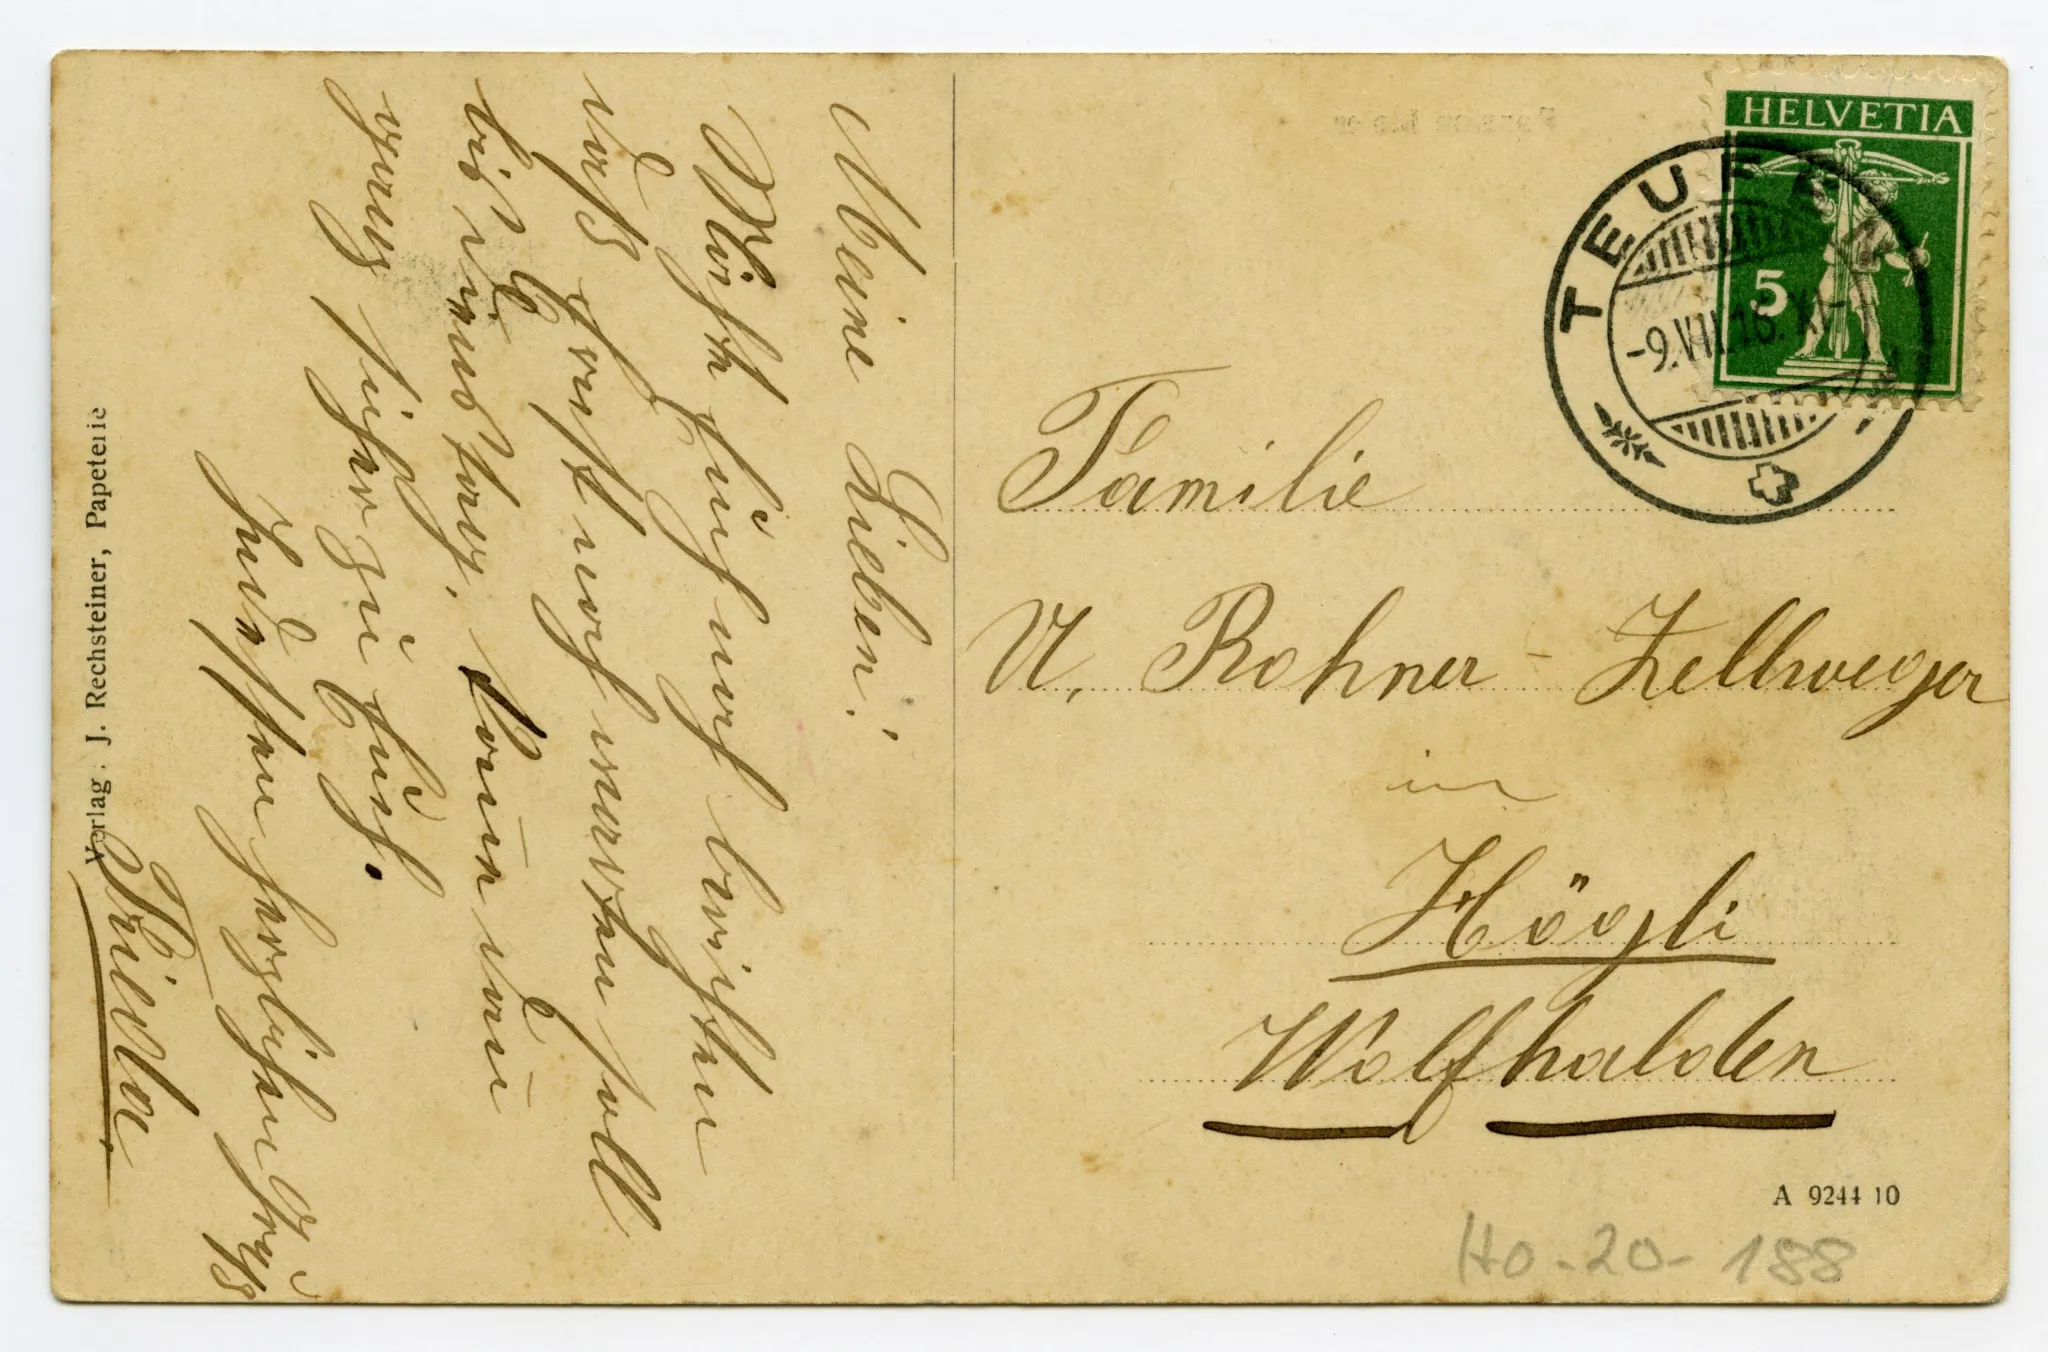 Meine Lieben!
Möchte Euch noch berichten
daß Ernst noch warten soll
bis Dienstag, kom̄ dan̄
ganz sicher zu Euch.
Indessen herzlichen Gruß
Frieda
Verlag: J. Rechsteiner, Papeterie
HELVETIA
5
TEUFEN
-9.VII.16. XI-
Familie
U. Rohner-Zellweger
in
Högli
Wolfhalden
A 9244 10
Ho-20-188